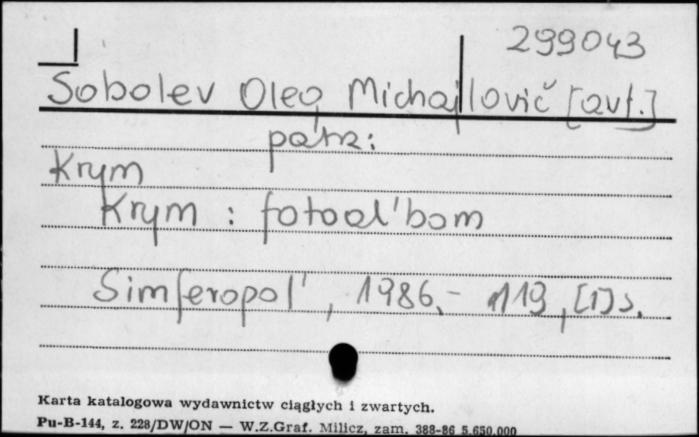 299043
Sobolev Oleg Michajlovič [avt.]
patrz:
Krym
Krym : fotoal'bom
Simferopol', 1986.- 119, [1] s.
Karta katalogowa wydawnictw ciągłych i zwartych.
Pu-B-144, z. 228/DW/ON — W.Z.Graf. Milicz, zam. 388-86 5.650.000